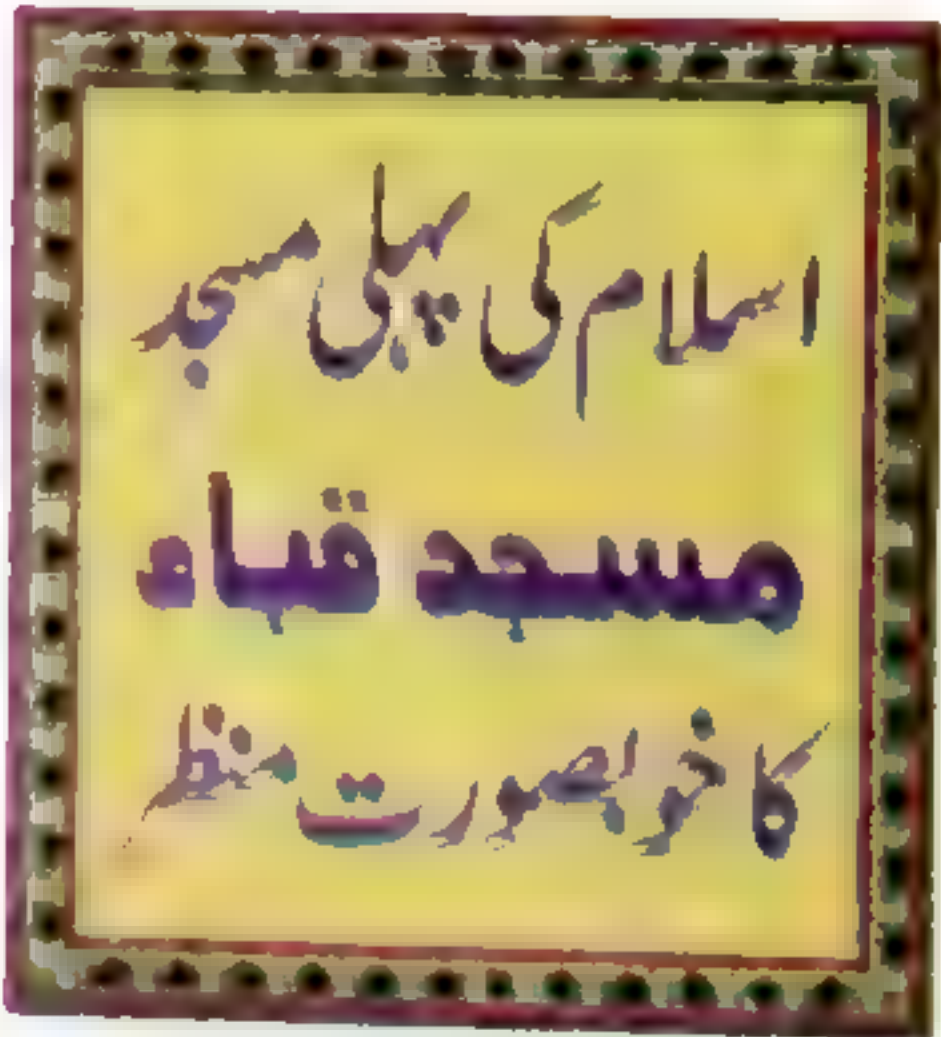 اسلام کی پہلی مسجد
مسجد قباء
کا خوبصورت منظر